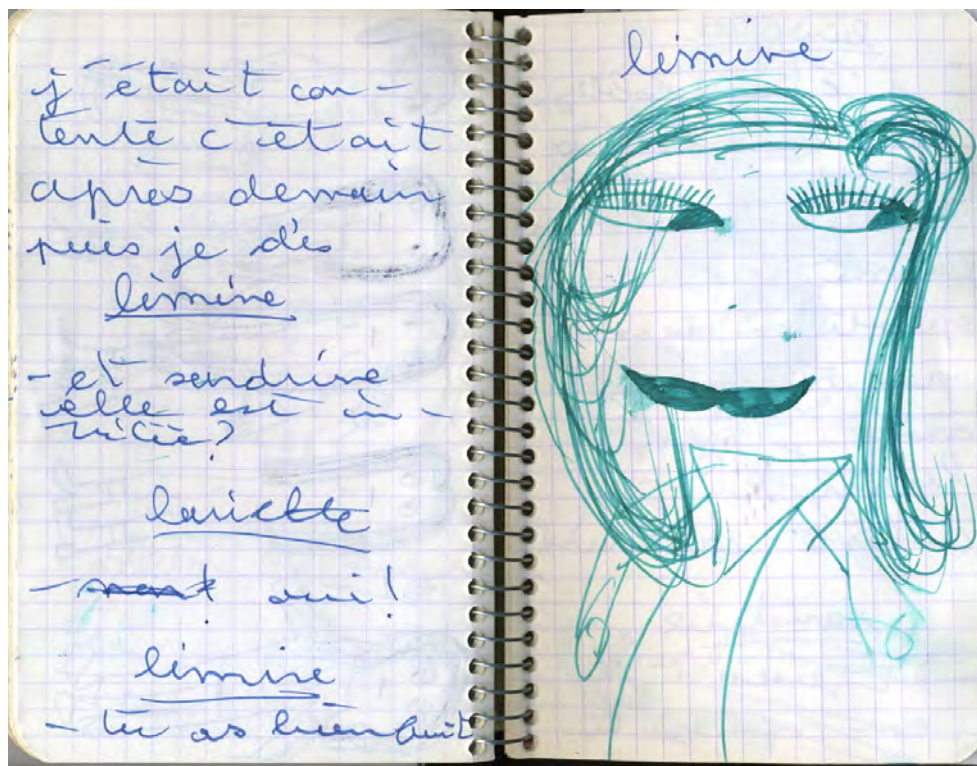 j'était con-
tente c'était
après demain
puis je dis
limine
- et sandrine
elle est in-
vitée?
lariette
- oui!
limine
- tu as bien fait
limine